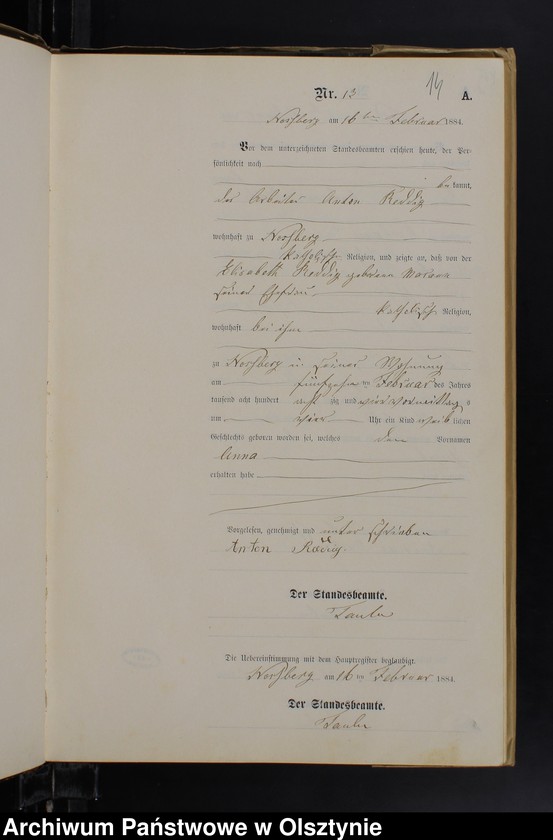 14
Nr. 13 A.
am 16ten Februar 1884.
Vor dem unterzeichneten Standesbeamten erschien heute, der Per-
sönlichkeit nach
bekannt,
der Arbeiter Anton Reddig
wohnhaft zu
katholischer Religion, und zeigte an, daß von der
Elisabeth Reddig geborene
seiner Ehefrau
katholischer Religion,
wohnhaft bei ihm
zu in seiner Wohnung
am fünfzehn ten Februar des Jahres
tausend acht hundert acht zig und vier vormittag s
um vier Uhr ein Kind weib lichen
Geschlechts geboren worden sei, welches den Vornamen
Anna
erhalten habe
Vorgelesen, genehmigt und unterschrieben
Anton
Der Standesbeamte.
Die Uebereinstimmung mit dem Hauptregister beglaubigt.
am 16ten Februar 1884.
Der Standesbeamte.
Archiwum Państwowe w Olsztynie